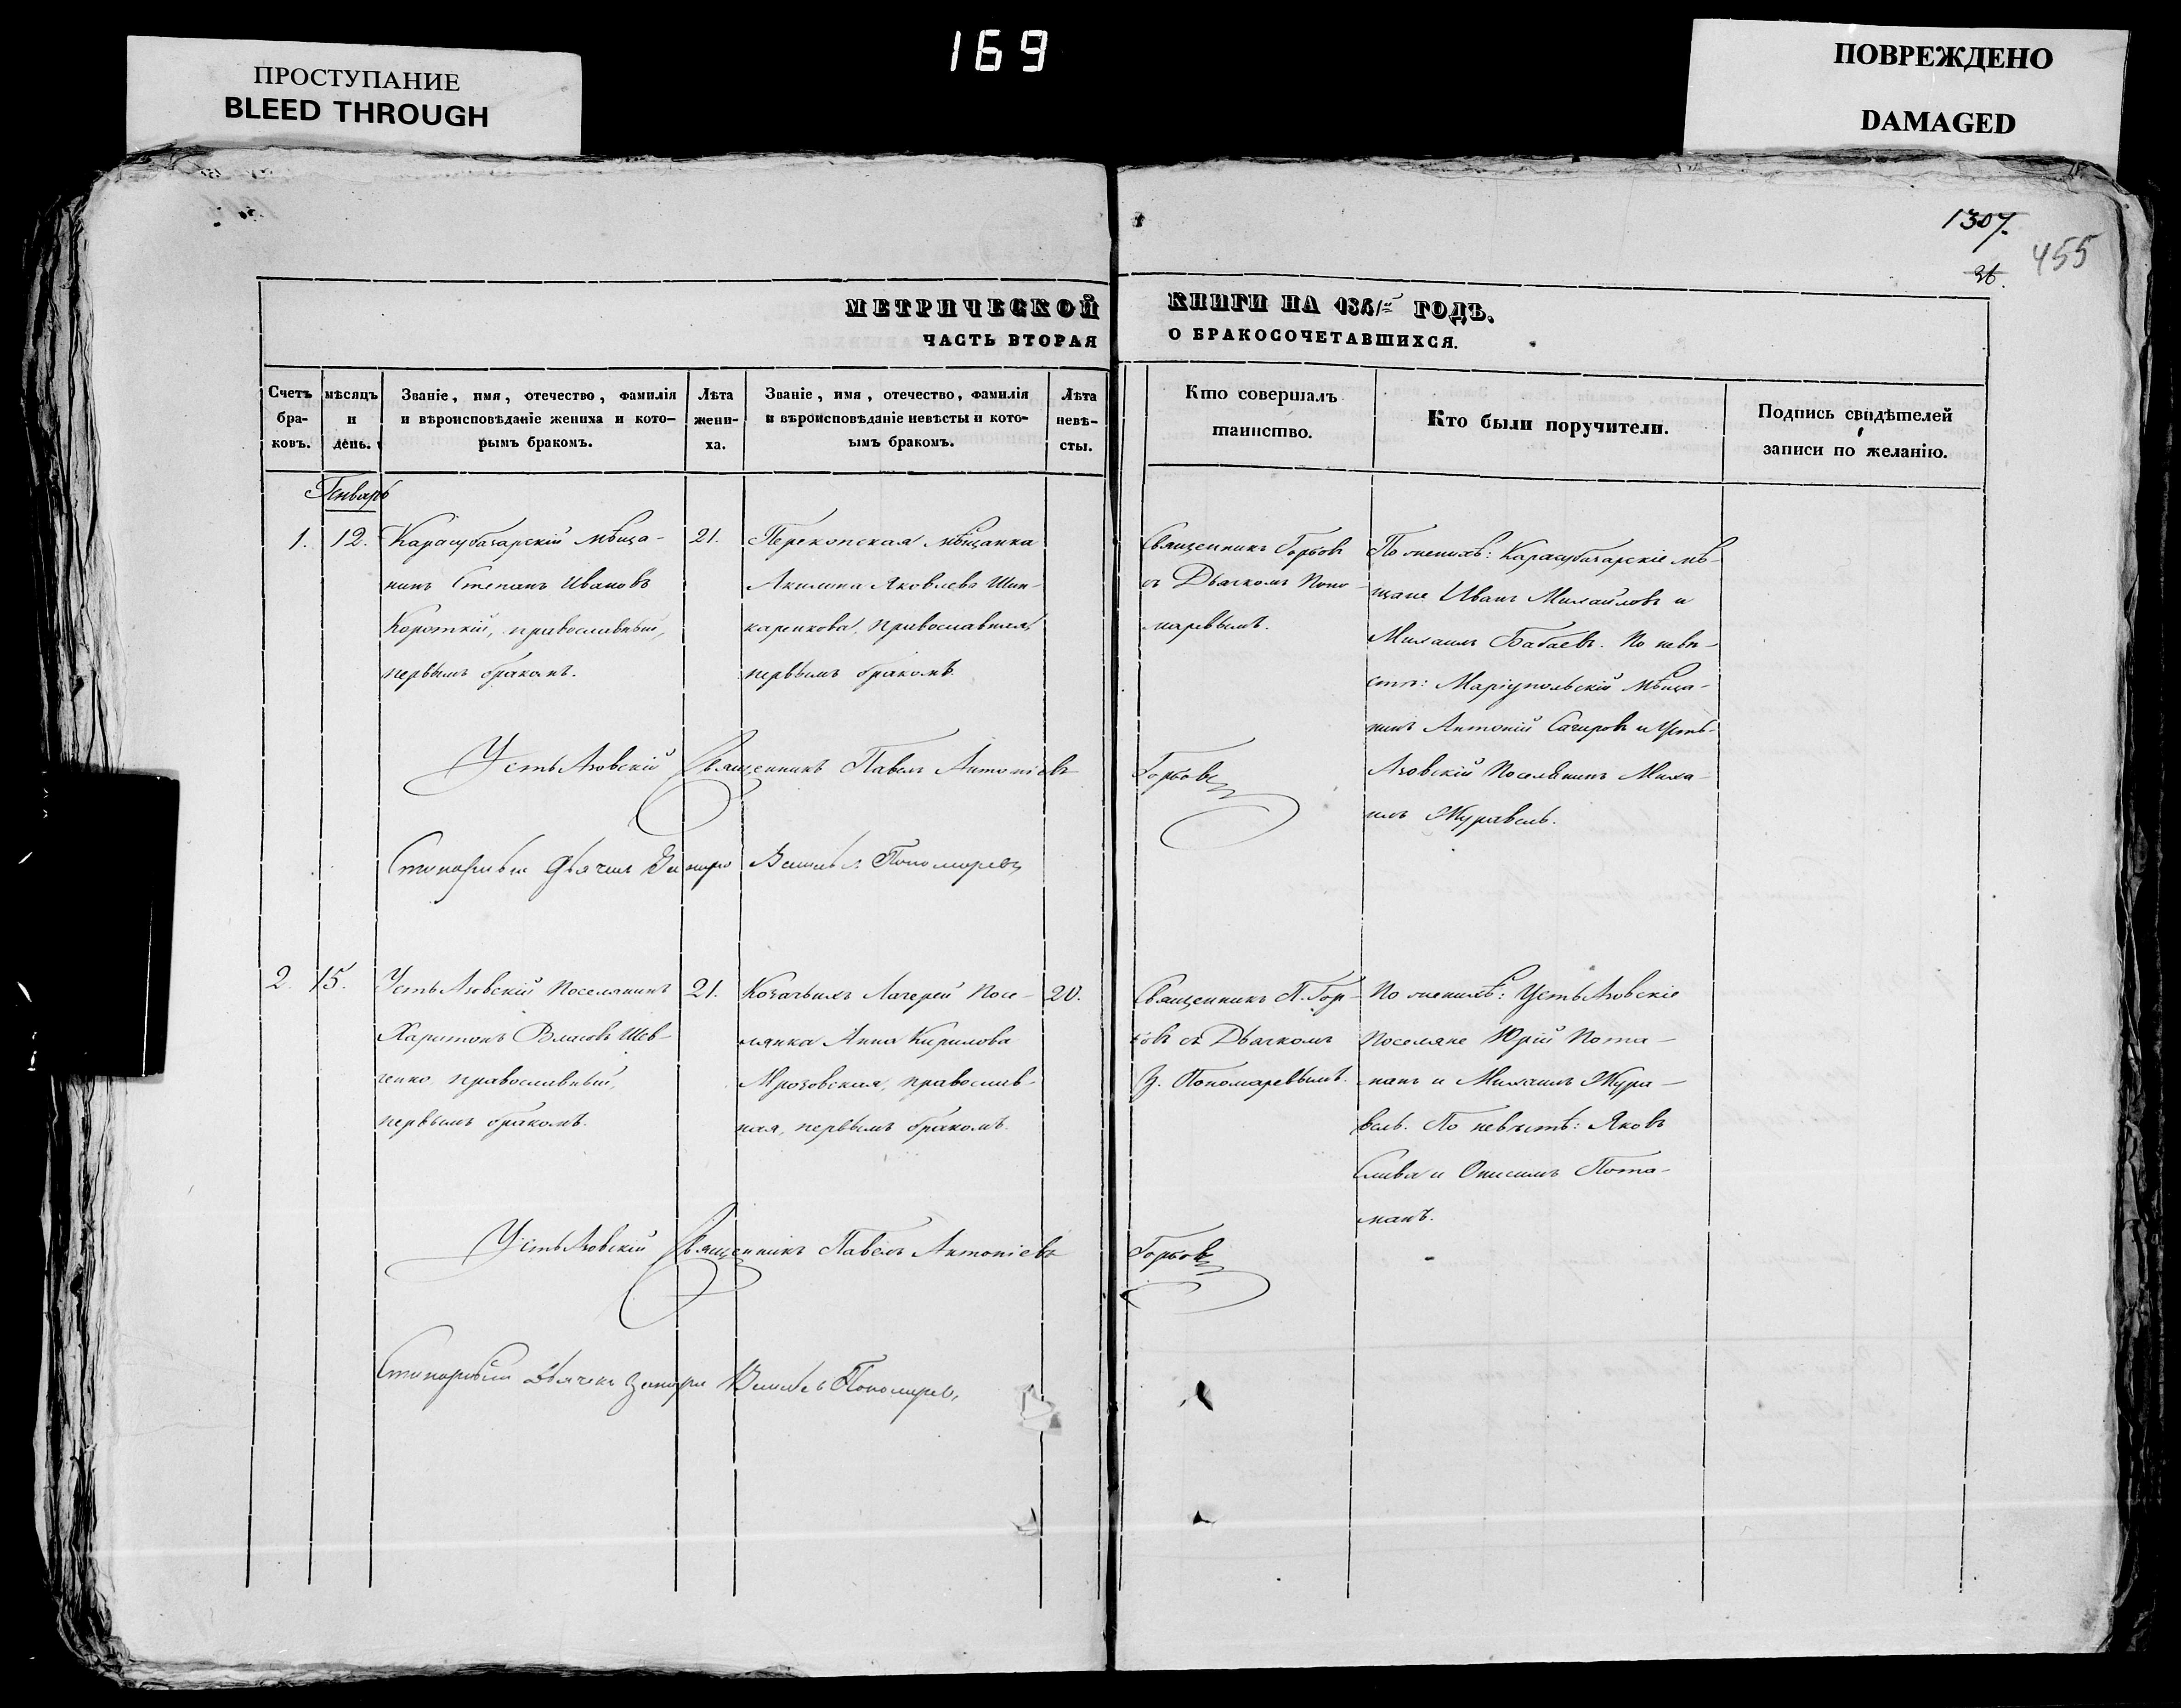 169
ПРОСТУПАНИЕ
BLEED THROUGH
ПОВРЕЖДЕНО
DAMAGED
1307.
455
МЕТРИЧЕСКОЙ
ЧАСТЬ ВТОРАЯ
КНИГИ НА ГОДЪ.
О БРАКОСОЧЕТАВШИХСЯ.
Счетъ
бра-
ковъ.
мѣсяцъ
и
день.
Званіе, имя, отечество, фамилія
и вѣроисповѣданіе жениха и кото-
рымъ бракомъ.
Лѣта
жени-
ха.
Званіе, имя, отечество, фамилія
и вѣроисповѣданіе невѣсты и кото-
ымъ бракомъ.
Лѣта
невѣ-
сты.
Кто совершалъ
таинство.
Кто были поручители.
Подпись свидѣтелей
записи по желанію.
Генварь
1.
12.
Карасубазарскій мѣща-
нинъ Степанъ Ивановъ
Короткій, православный,
первымъ бракомъ.
21.
Перекопская мѣщанка
Акилина Яковлева Шин-
каренкова, православная,
первымъ бракомъ.
Священникъ Горбовъ
съ Дьячкомъ Поно-
маревымъ.
По женихѣ: Карасубазарскіе мѣ-
щане Иванъ Михайловъ и
Михаилъ Бабаевъ. По невѣ-
стѣ: Маріупольскій мѣща-
нинъ Антоній Сагировъ и Усть-
Азовскій Поселянинъ Миха-
илъ Журавель.
Усть Азовскій Священникъ Павелъ Антоніевъ Горбовъ
Дьячекъ Пономаревъ
2.
15.
Усть Азовскій Поселянинъ
Харитонъ Власовъ Шев-
ченко, православный,
первымъ бракомъ.
21.
Козачьихъ Лагерей Посе-
лянка Анна Кирилова
Мрозовская, православ-
ная, первымъ бракомъ.
20.
Священникъ П. Гор-
бовъ съ Дьячкомъ
З. Пономаревымъ.
По женихѣ: Усть Азовскіе
Поселяне Юрій Пота-
панъ и Михаилъ Жура-
вель. По невѣстѣ: Яковъ
Слива и Онисимъ Пота-
панъ.
Усть Азовскій Священникъ Павелъ Антоніевъ Горбовъ
Дьячекъ Пономаревъ